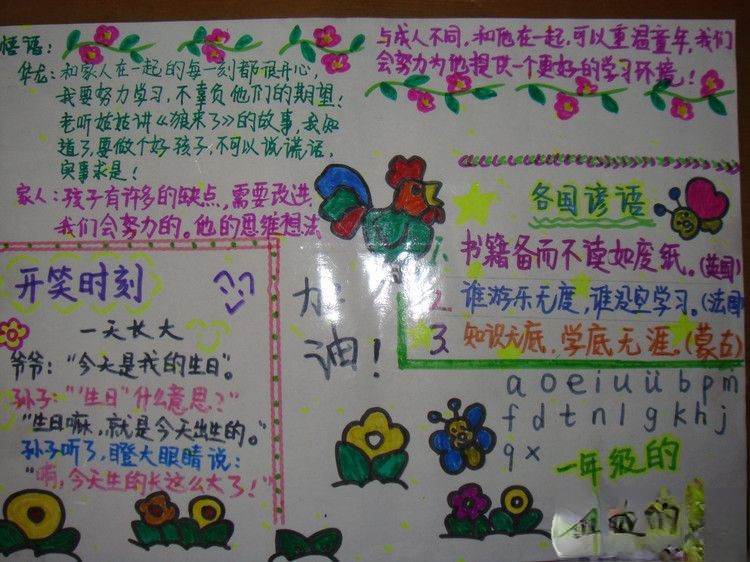 悟语：
华龙：和家人在一起的每一刻都很开心，
我要努力学习，不辜负他们的期望！
老听姑姑讲《狼来了》的故事，我知
道了要做个好孩子，不可以说谎话，
实事求是！
家人：孩子有许多的缺点，需要改进
我们会努力的。他的思维想法
与成人不同，和他在一起，可以重温童年，我们
会努力为他提供一个更好的学习环境！
开笑时刻
一天长大
爷爷：“今天是我的生日”。
孙子：“‘生日’什么意思？”
“生日嘛，就是今天出生的。”
孙子听了，瞪大眼睛说：
“啊，今天生的长这么大了！”
加
油！
各国谚语
1. 书籍备而不读如废纸。（英国）
2. 谁游乐无度，谁没空学习。（法国）
3. 知识无底，学底无涯。（蒙古）
a o e i u ü b p m
f d t n l g k h j
q x
一年级的